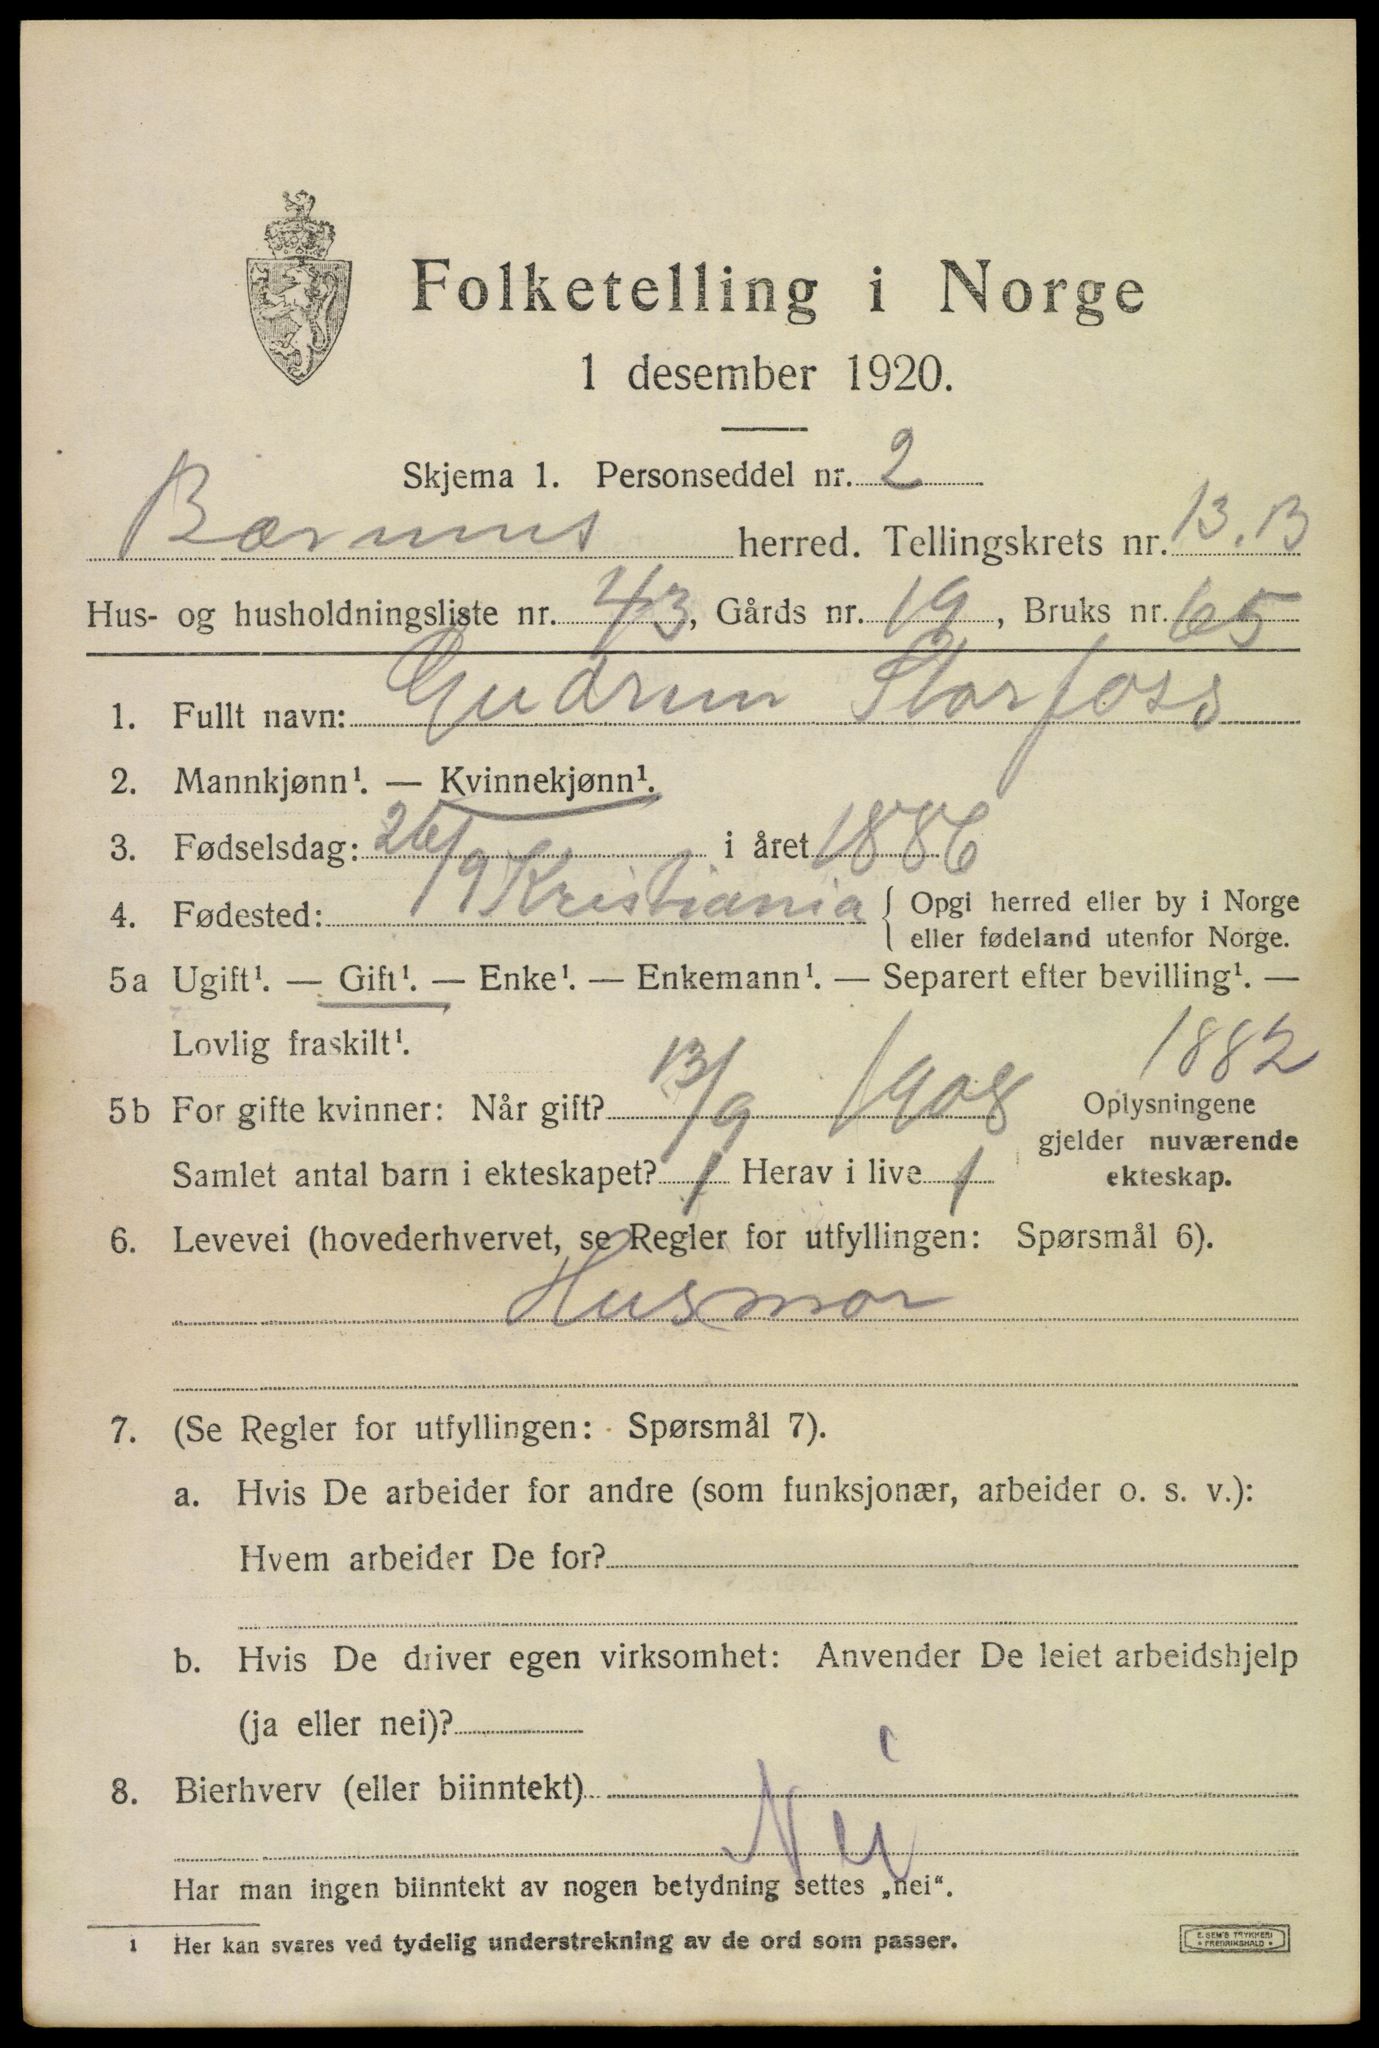 Folketelling i Norge
1 desember 1920.
Skjema 1. Personseddel nr. 2
Bærums herred. Tellingskrets nr. 13.B
Hus- og husholdningsliste nr. 43, Gårds nr. 19, Bruks nr. 65
1. Fullt navn: Gudrun Storfoss
2. Mannkjønn¹. — Kvinnekjønn¹.
3. Fødselsdag: 26/9 i året 1886
4. Fødested: Kristiania { Opgi herred eller by i Norge
eller fødeland utenfor Norge.
5a Ugift¹. — Gift¹. — Enke¹. — Enkemann¹. — Separert efter bevilling¹. —
Lovlig fraskilt¹.
1882
5b For gifte kvinner: Når gift? 13/9 1908 Oplysningene
gjelder nuværende
Samlet antal barn i ekteskapet? 1 Herav i live 1 ekteskap.
6. Levevei (hovederhvervet, se Regler for utfyllingen: Spørsmål 6).
Husmor
7. (Se Regler for utfyllingen: Spørsmål 7).
a. Hvis De arbeider for andre (som funksjonær, arbeider o. s. v.):
Hvem arbeider De for?
b. Hvis De driver egen virksomhet: Anvender De leiet arbeidshjelp
(ja eller nei)?
8. Bierhverv (eller biinntekt)
Nei
Har man ingen biinntekt av nogen betydning settes „nei“.
1 Her kan svares ved tydelig understrekning av de ord som passer.
E. SEM'S TRYKKERI
• FREDRIKSHALD •